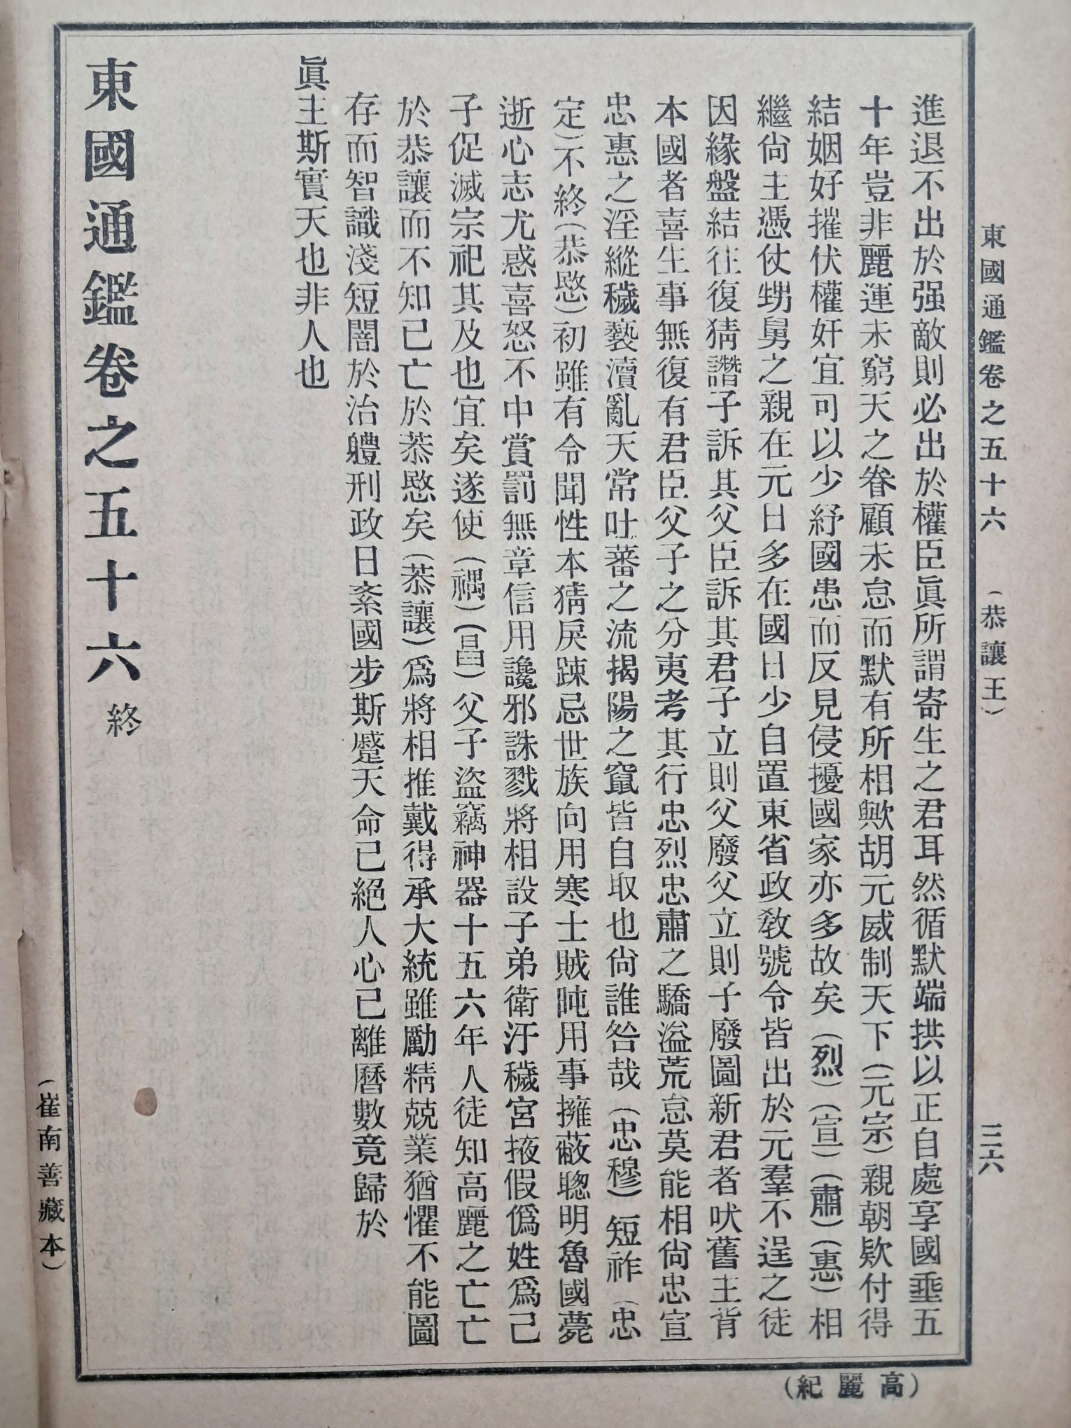 東國通鑑卷之五十六 (恭讓王) 三六
進退不出於强敵則必出於權臣眞所謂寄生之君耳然循默端拱以正自處享國垂五
十年豈非麗運未窮天之眷顧未怠而默有所相歟胡元威制天下(元宗)親朝欵付得
結姻好摧伏權奸宜可以少紓國患而反見侵擾國家亦多故矣(烈)(宣)(肅)(惠)相
繼尙主憑仗甥舅之親在元日多在國日少自置東省政敎號令皆出於元羣不逞之徒
因緣盤結往復猜讚子訴其父臣訴其君子立則父廢父立則子廢圖新君者吠舊主背
本國者喜生事無復有君臣父子之分夷考其行忠烈忠肅之驕溢荒怠莫能相尙忠宣
忠惠之淫縱穢褻瀆亂天常吐蕃之流揭陽之竄皆自取也尙誰咎哉(忠穆)短祚(忠
定)不終(恭愍)初雖有令聞性本猜戾踈忌世族向用寒士賊旽用事擁蔽聰明魯國薨
逝心志尤惑喜怒不中賞罰無章信用讒邪誅戮將相設子弟衛汙穢宮掖假僞姓爲己
子促滅宗祀其及也宜矣遂使(禑)(昌)父子盜竊神器十五六年人徒知高麗之亡亡
於恭讓而不知已亡於恭愍矣(恭讓)爲將相推戴得承大統雖勵精兢業猶懼不能圖
存而智識淺短闇於治軆刑政日紊國步斯蹙天命已絕人心已離曆數竟歸於
眞主斯實天也非人也
東國通鑑卷之五十六終
(高麗紀)
(崔南善藏本)